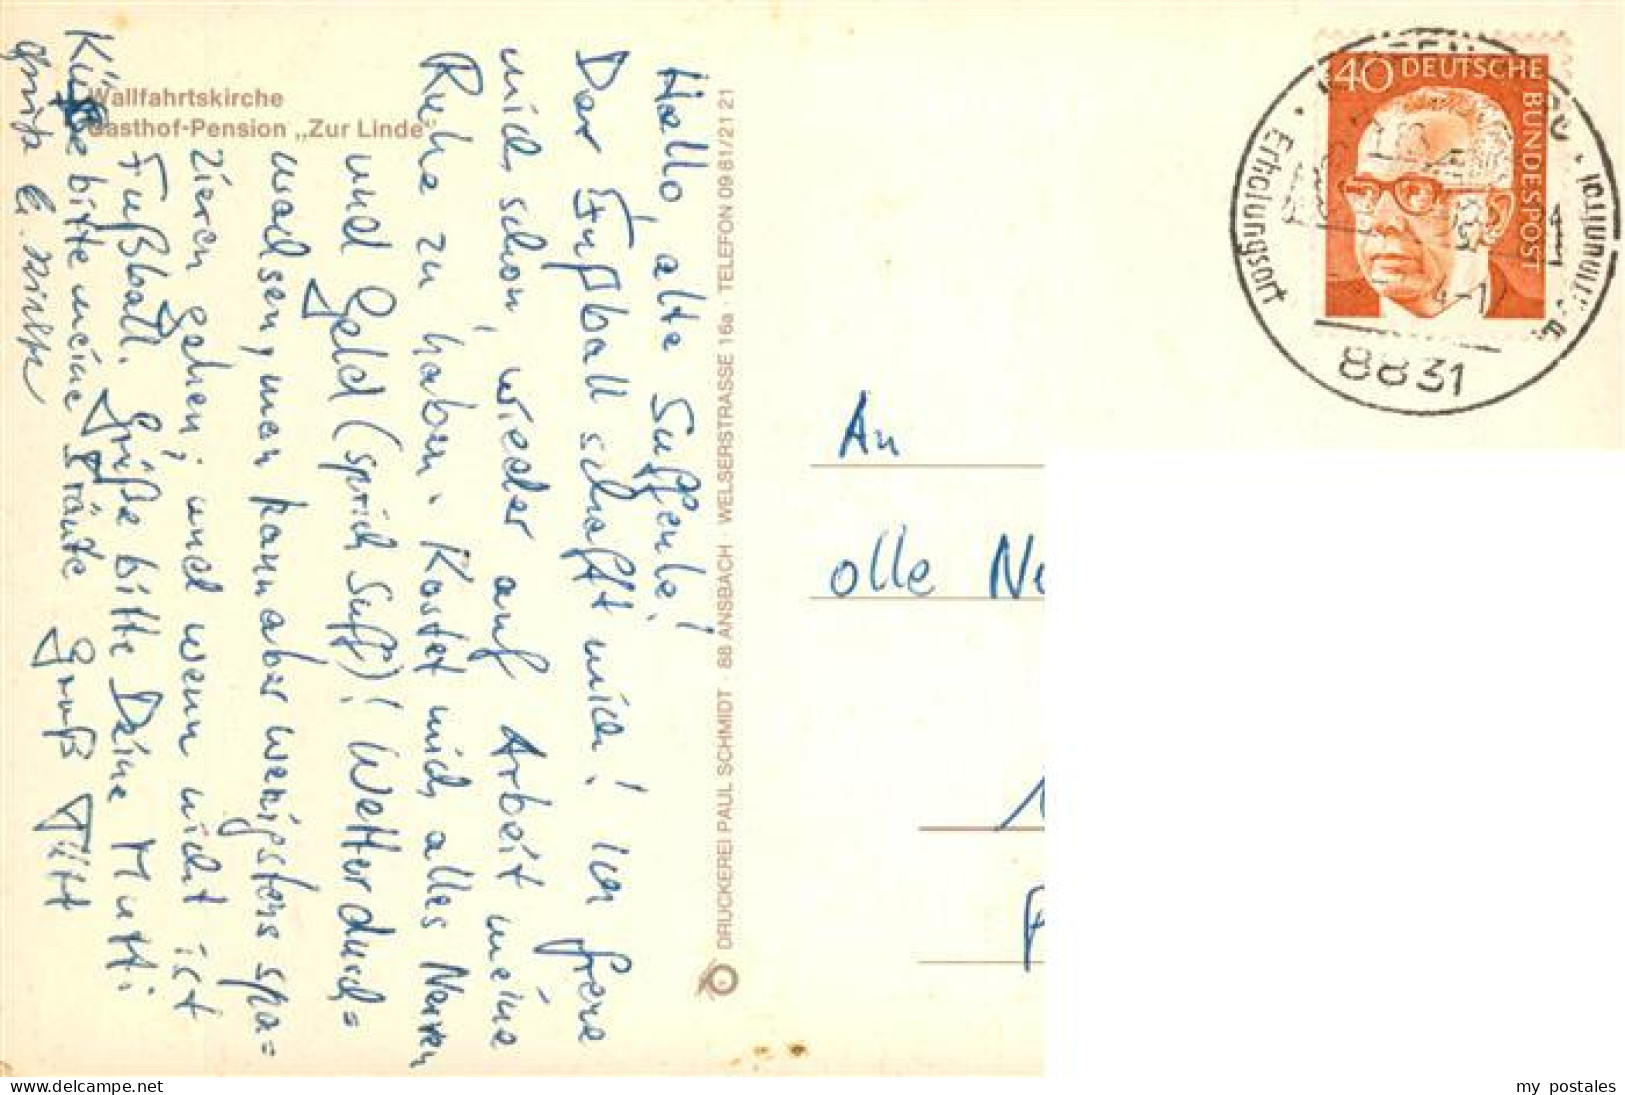 Wallfahrtskirche
Gasthof-Pension „Zur Linde"
Hallo, alte Suffeule!
Der Fußball schafft mich! Ich freue
mich schon, wieder auf Arbeit meine
Ruhe zu haben. Kostet mich alles Nerven
und Geld (sprich Suff)! Wetter durch=
wachsen, man kann aber wenigstens spa=
zieren gehen; und wenn nicht ist
Fußball. Grüße bitte Deine Mutti
Küsse bitte meine Bräute Gruß Tütt
DRUCKEREI PAUL SCHMIDT · 88 ANSBACH · WELSERSTRASSE 16a · TELEFON 09 81/21 21
40 DEUTSCHE
BUNDESPOST
Erholungs
Ausflugs
8831
An
olle
my postales